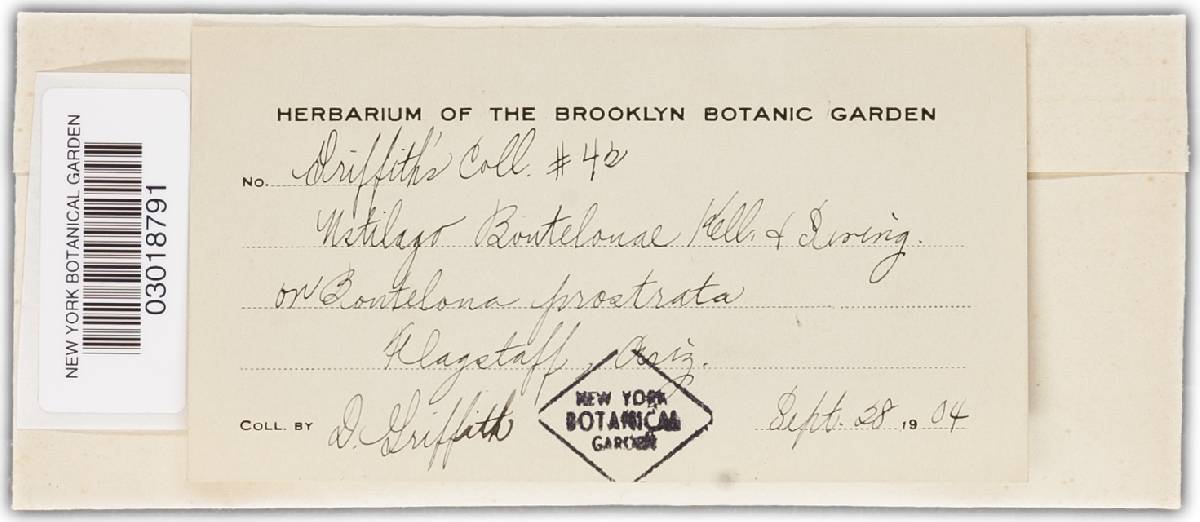 HERBARIUM OF THE BROOKLYN BOTANIC GARDEN
No. Griffith's Coll. #42
Ustilago Boutelouae Kell. & Swing.
on Bouteloua prostrata
Flagstaff, Ariz.
COLL. BY D. Griffith Sept. 28 1904
NEW YORK
BOTANICAL
GARDEN
NEW YORK BOTANICAL GARDEN
03018791